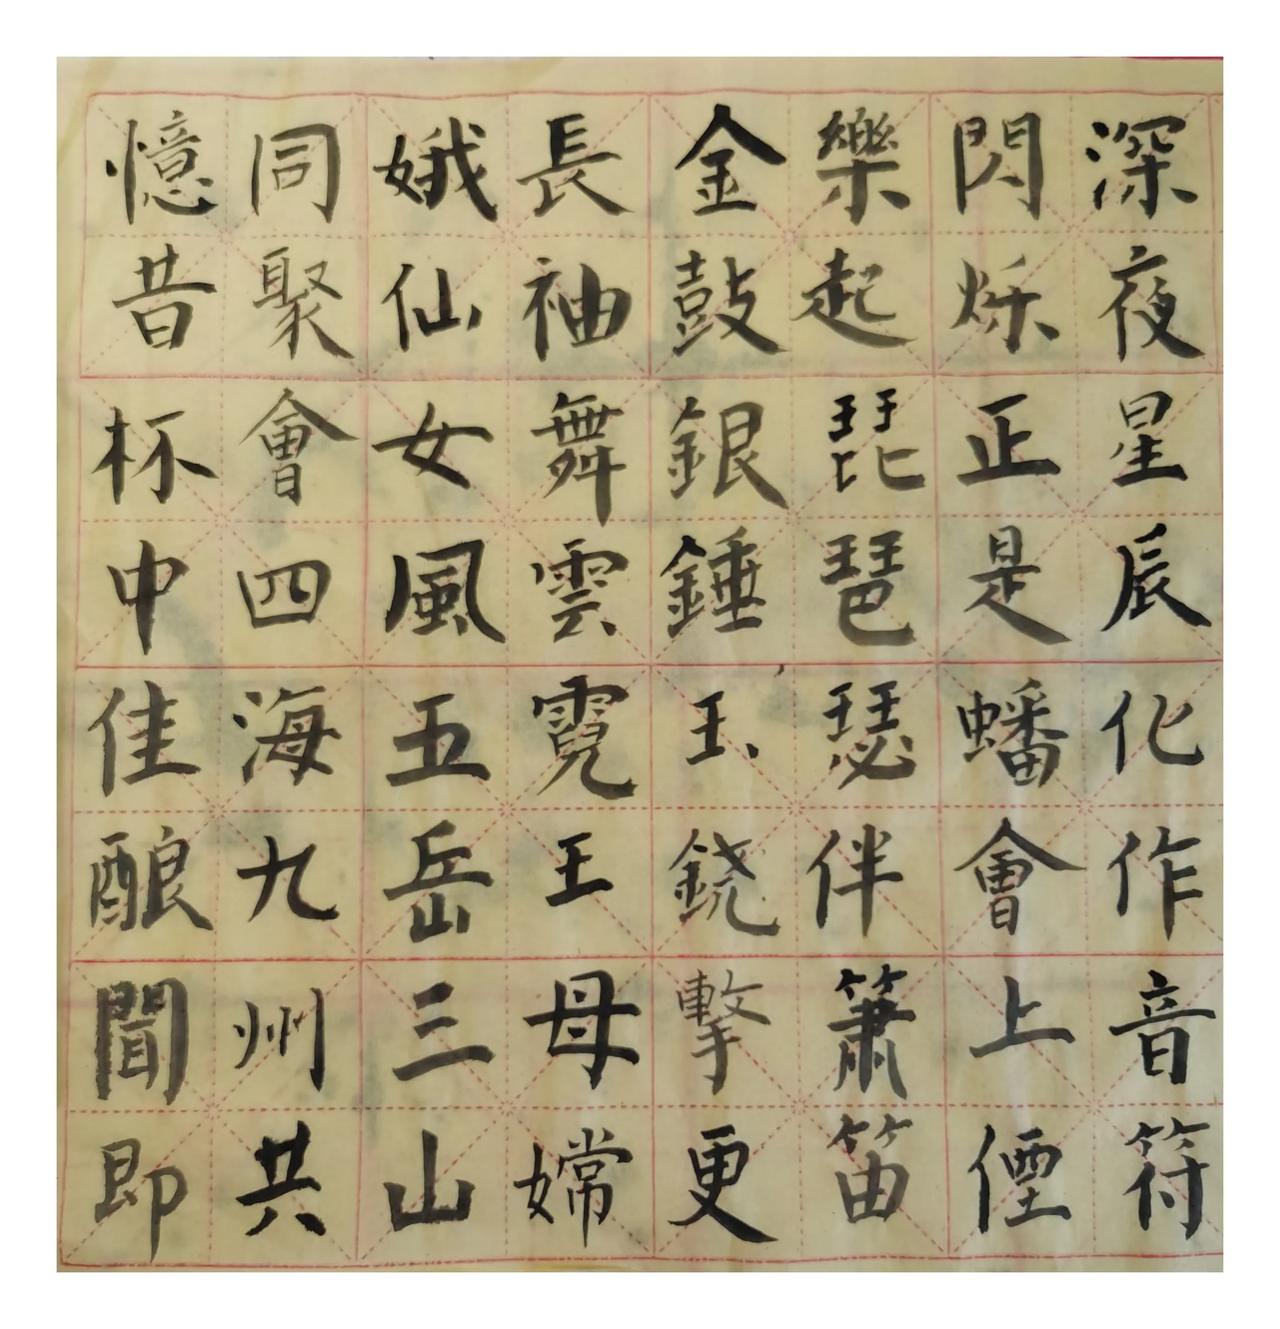 深夜星辰化作音符
閃烁正是蟠會上㒨
樂起琵琶瑟伴簫笛
金鼓銀錘玉鐃擊更
長袖舞雲霓王母嫦
娥仙女風五岳三山
同聚會四海九州共
憶昔杯中佳酿聞即